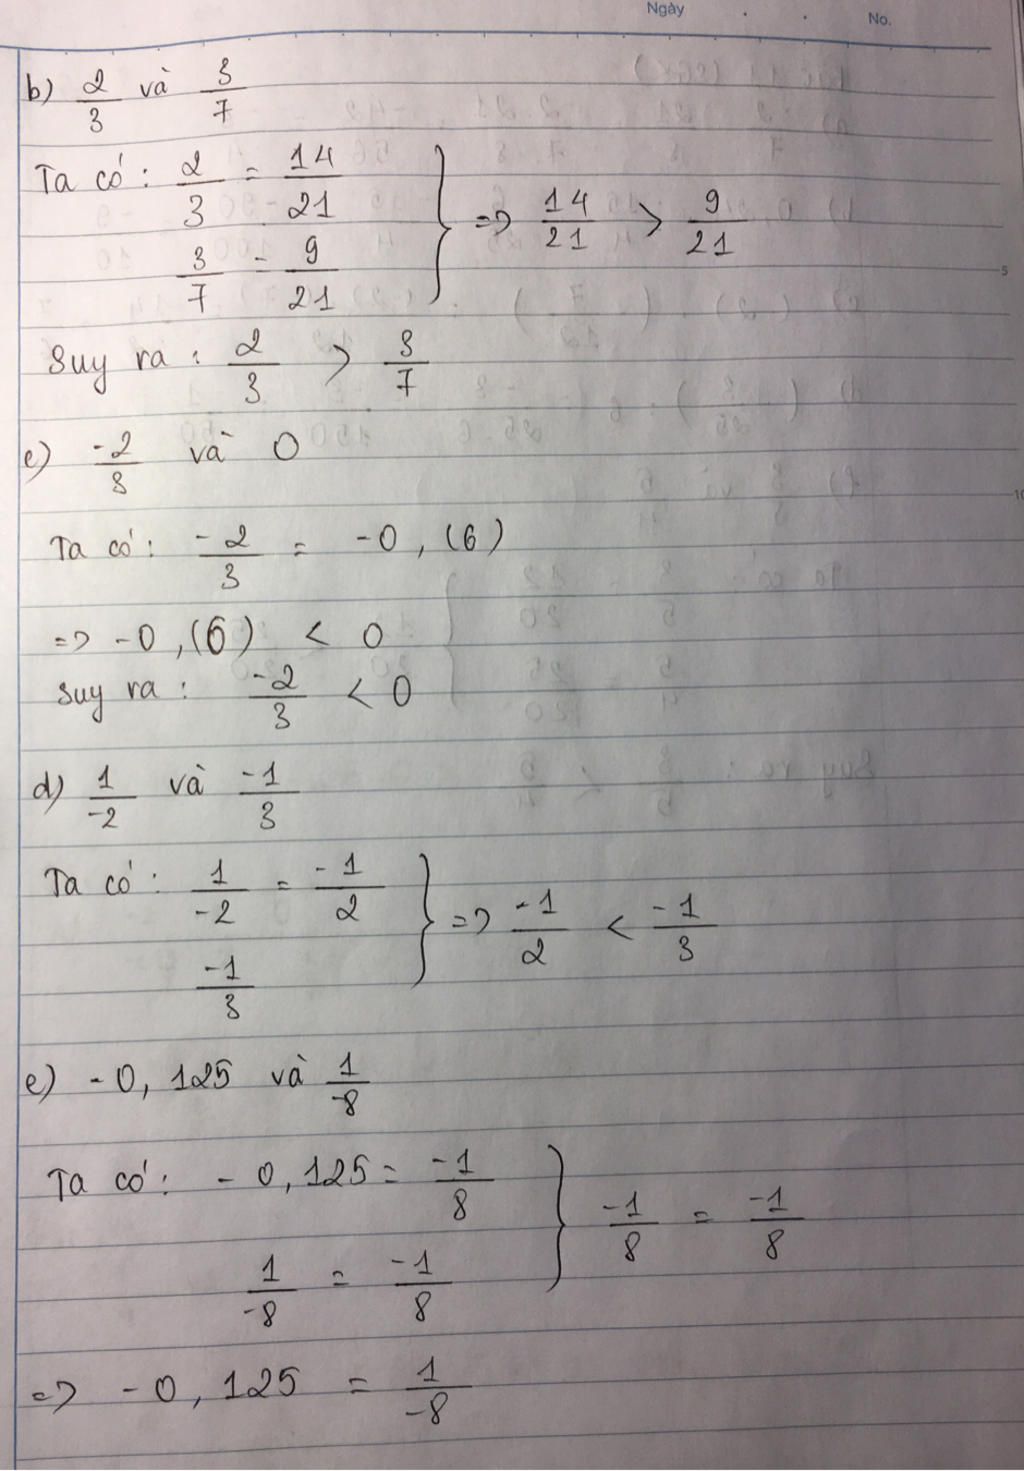 Ngày . . No.
b) 2/3 và 3/7
Ta có: 2/3 = 14/21
3/7 = 9/21 } => 14/21 > 9/21
5
Suy ra: 2/3 > 3/7
c) -2/3 và 0
10
Ta có: -2/3 = -0,(6)
=> -0,(6) < 0
Suy ra: -2/3 < 0
d) 1/-2 và -1/3
Ta có: 1/-2 = -1/2
-1/3 } => -1/2 < -1/3
e) -0,125 và 1/-8
Ta có: -0,125 = -1/8
1/-8 = -1/8 } -1/8 = -1/8
=> -0,125 = 1/-8